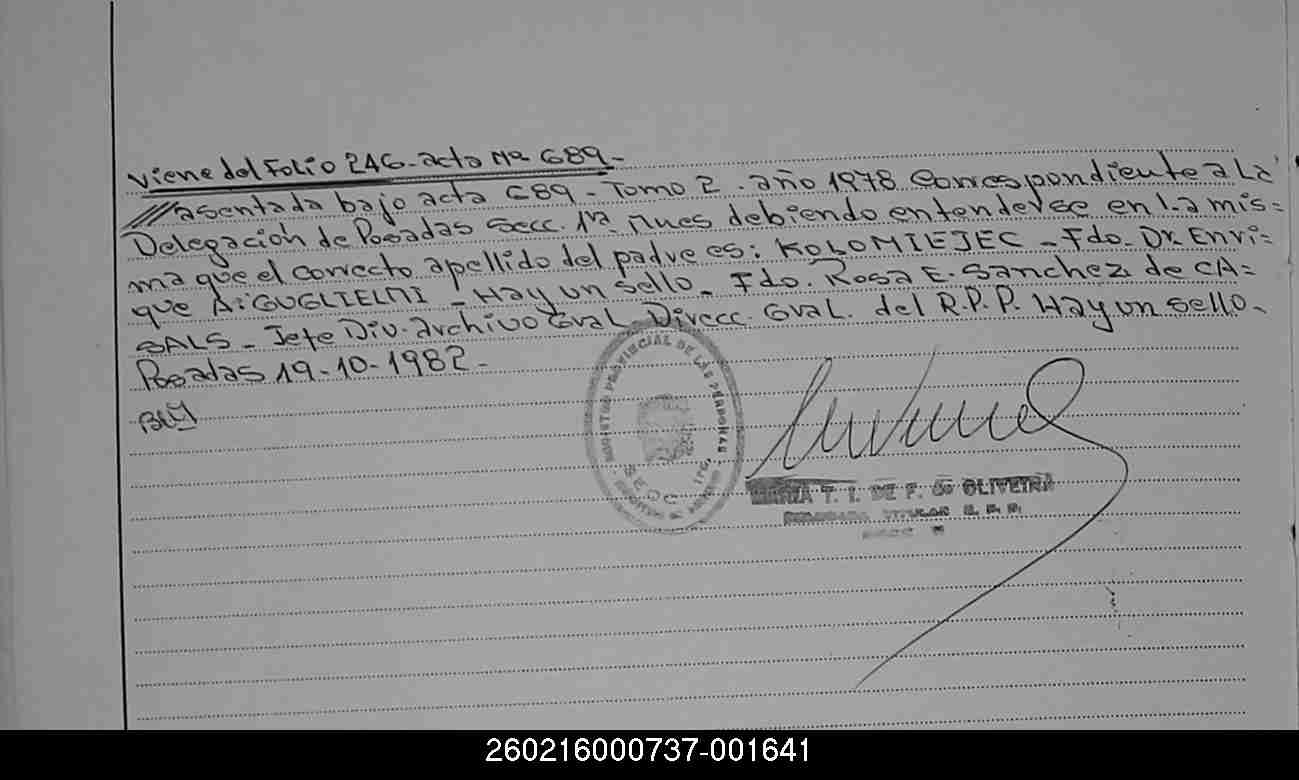 Viene del Folio 246 - acta Nº 689 -
asentada bajo acta 689 - Tomo 2 - año 1978 correspondiente a la
Delegación de Posadas Secc. 1ra. Mnes debiendo entenderse en la mis=
ma que el correcto apellido del padre es: KOLOMIEJEC - Fdo. Dr. Enri=
que A. GUGLIELMI - Hay un sello - Fdo. Rosa E. Sanchez de CA=
SALS - Jefe Div. archivo Gral Direcc. Gral. del R.P.P. Hay un sello -
Posadas 19-10-1982 -
REGISTRO PROVINCIAL DE LAS PERSONAS
MARIA T. I. DE F. de OLIVEIRA
TITULAR R. P. P.
260216000737-001641